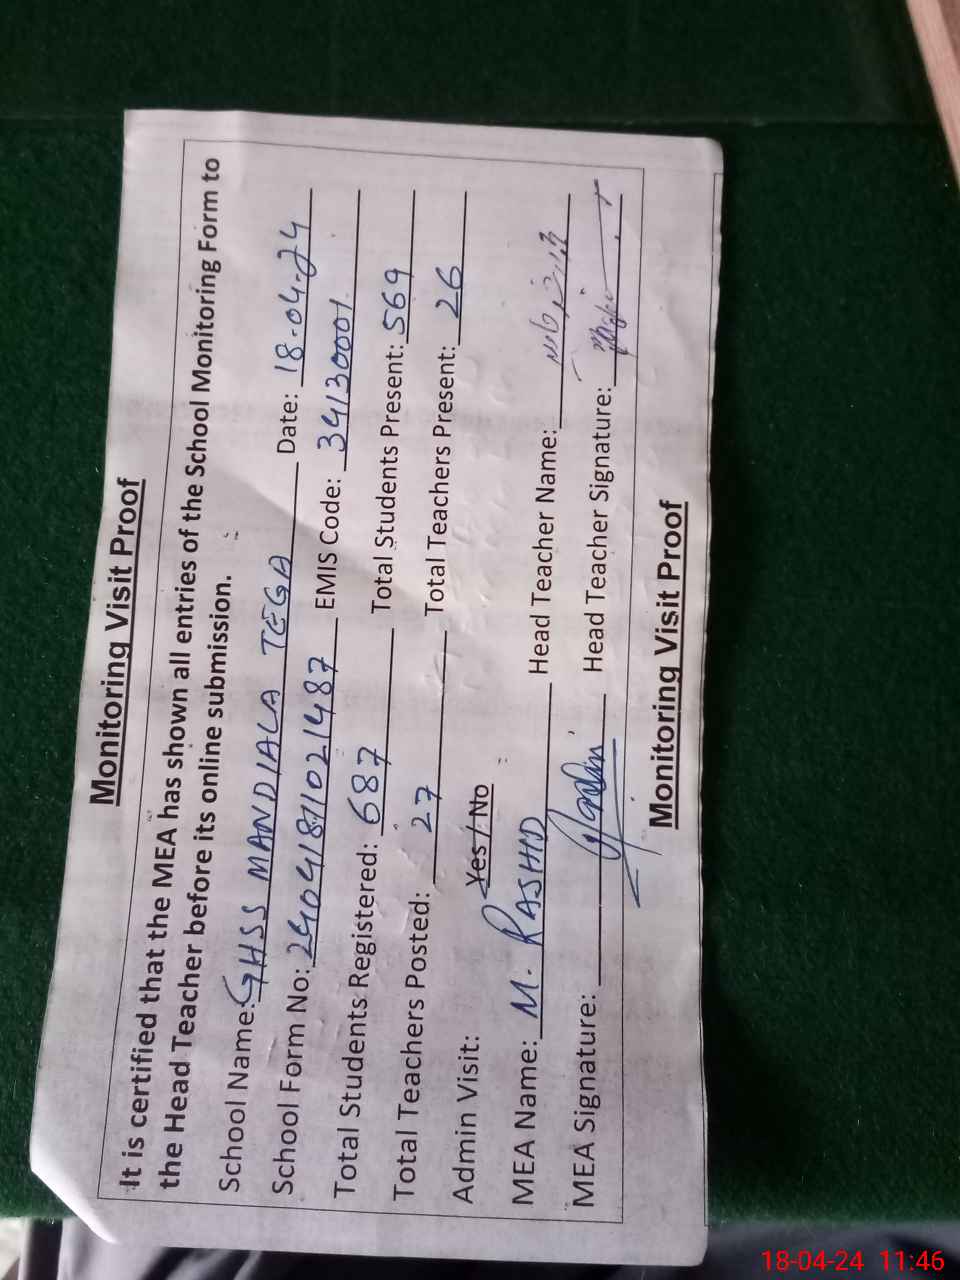 Monitoring Visit Proof
It is certified that the MEA has shown all entries of the School Monitoring Form to
the Head Teacher before its online submission.
School Name: GHSS MANDIALA TEGA Date: 18-04-24
School Form No: 24041811021487 EMIS Code: 34130001
Total Students Registered: 687 Total Students Present: 569
Total Teachers Posted: 27 Total Teachers Present: 26
Admin Visit: Yes / No
MEA Name: M. RASHID Head Teacher Name:
MEA Signature: Head Teacher Signature:
Monitoring Visit Proof
18-04-24 11:46